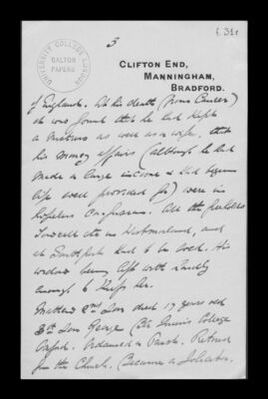 f. 31r
UNIVERSITY COLLEGE LONDON
GALTON PAPERS
3
CLIFTON END,
MANNINGHAM,
BRADFORD.
of England. At his death (from Cancer)
it was found that he had kept
a mistress as well as a wife, that
his money affairs (although he had
made a large income & had begun
life well provided for) were in
hopeless confusion. All the
in Westmorland, and
at Southport had to be sold. His
widow being left with barely
enough to keep her.
2nd Son died 17 years old
3rd Son George (B.A. Queens College
Oxford. Ordained a Priest. Retired
from the Church. Became a Solicitor.